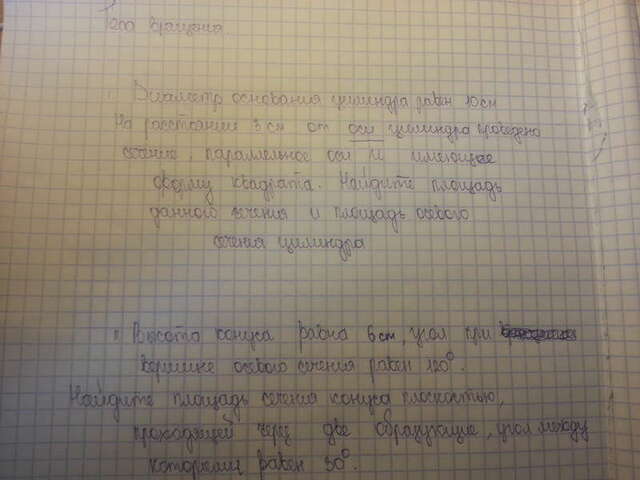 Тела вращения
Диаметр основания цилиндра равен 10 см
На расстоянии 3 см от оси цилиндра проведено
сечение, параллельное оси и имеющее
форму квадрата. Найдите площадь
данного сечения и площадь осевого
сечения цилиндра
Высота конуса равна 6 см, угол при
вершине осевого сечения равен 120°.
Найдите площадь сечения конуса плоскостью,
проходящей через две образующие, угол между
которыми равен 30°.